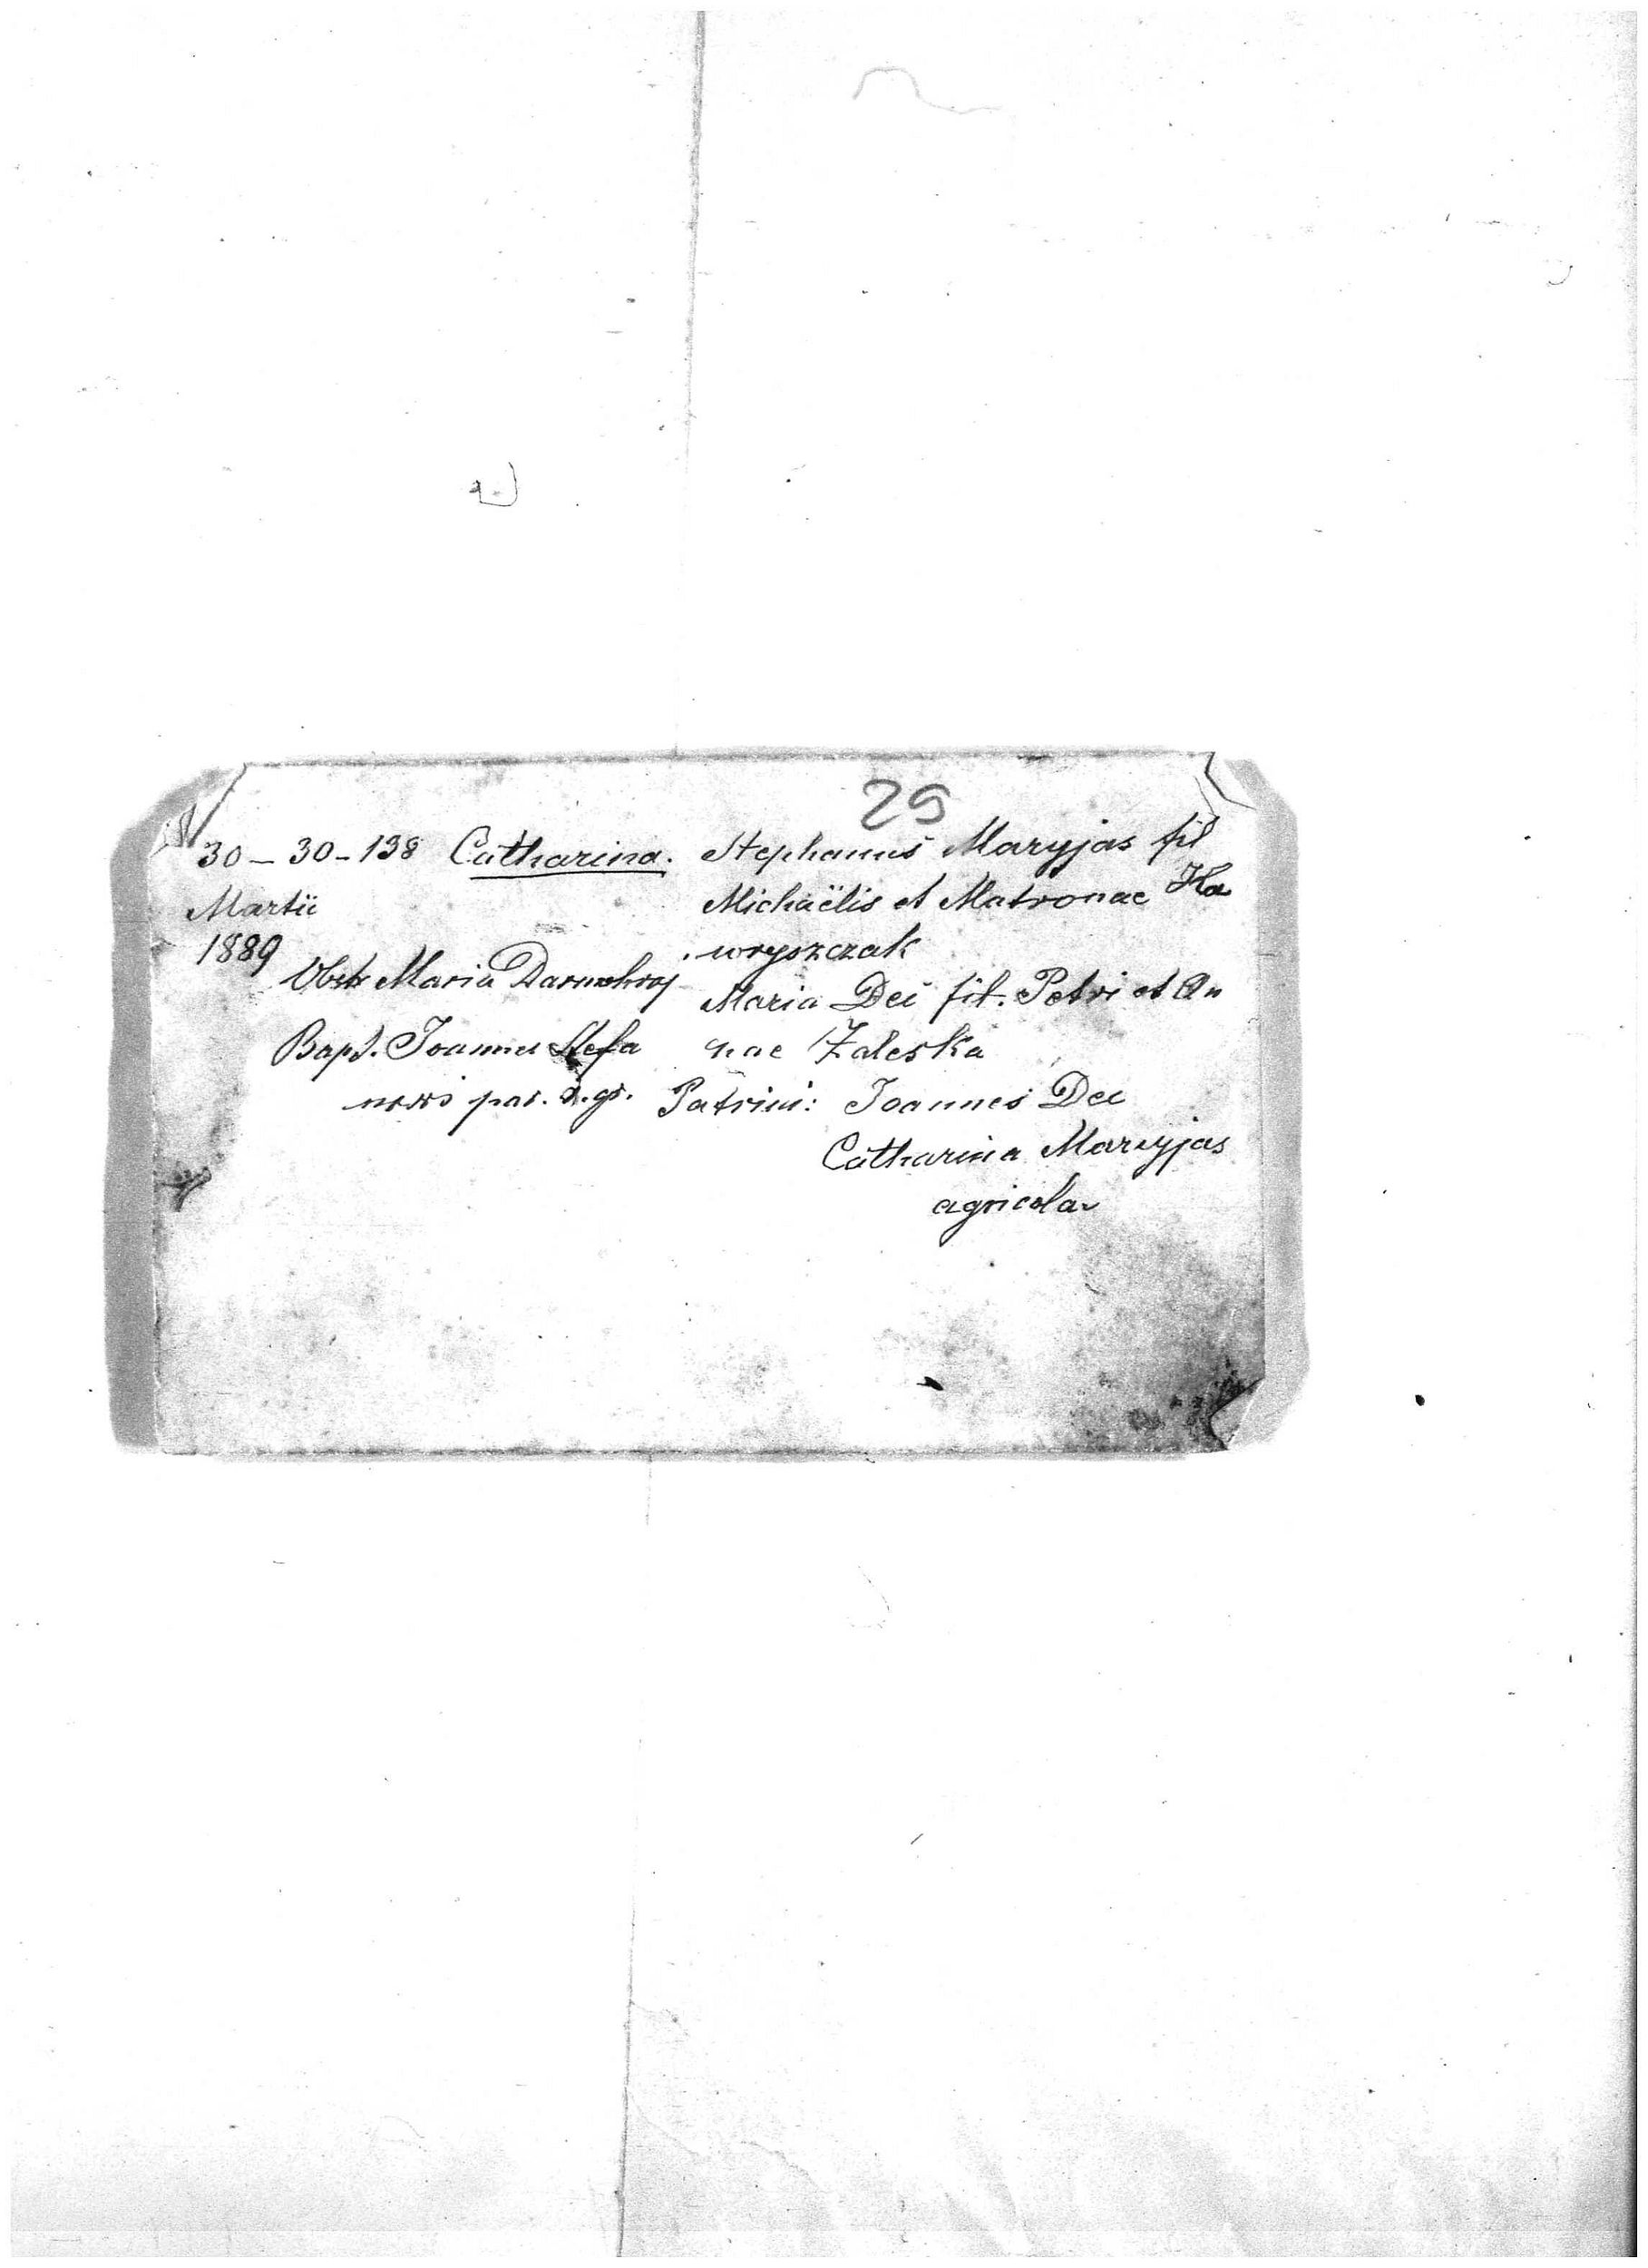 25
30 – 30 – 138 Catharina. Stephanus Maryjas fil
Martii Michaëlis et Matronae Ha
1889 wryszczak
Obstr Maria Maria Dei fil. Petri et An
Bapt. Joannes Stefa nae Zaleska
par. Patrini: Joannes Dei
Catharina Maryjas
agricolae